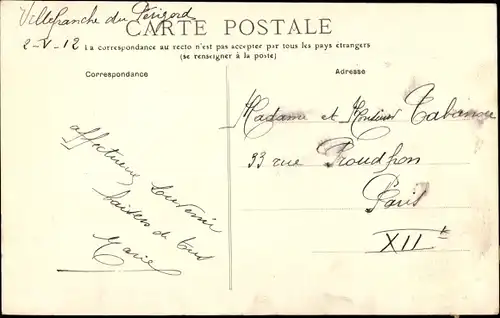 Villefranche du Périgord
2-V-12
CARTE POSTALE
La correspondance au recto n'est pas acceptée par tous les pays étrangers
(se renseigner à la poste)
Correspondance
Adresse
affectueux souvenir
baisers de tous
Marie
Madame et Monsieur
33 rue Proudhon
Paris
XIIe